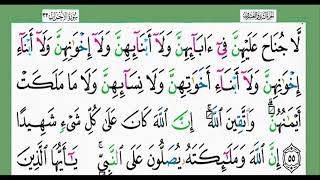 سورة الأحزاب ٣٣
لَّا جُنَاحَ عَلَيْهِنَّ فِىٓ ءَابَآئِهِنَّ وَلَآ أَبْنَآئِهِنَّ وَلَآ إِخْوَٰنِهِنَّ وَلَآ أَبْنَآءِ
إِخْوَٰنِهِنَّ وَلَآ أَبْنَآءِ أَخَوَٰتِهِنَّ وَلَا نِسَآئِهِنَّ وَلَا مَا مَلَكَتْ
أَيْمَٰنُهُنَّ ۗ وَٱتَّقِينَ ٱللَّهَ ۚ إِنَّ ٱللَّهَ كَانَ عَلَىٰ كُلِّ شَىْءٍ شَهِيدًا
٥٥ إِنَّ ٱللَّهَ وَمَلَٰٓئِكَتَهُۥ يُصَلُّونَ عَلَى ٱلنَّبِىِّ ۚ يَٰٓأَيُّهَا ٱلَّذِينَ